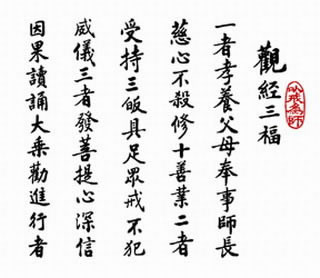 觀經三福
以戒為師
一者孝養父母奉事師長
慈心不殺修十善業二者
受持三皈具足眾戒不犯
威儀三者發菩提心深信
因果讀誦大乘勸進行者